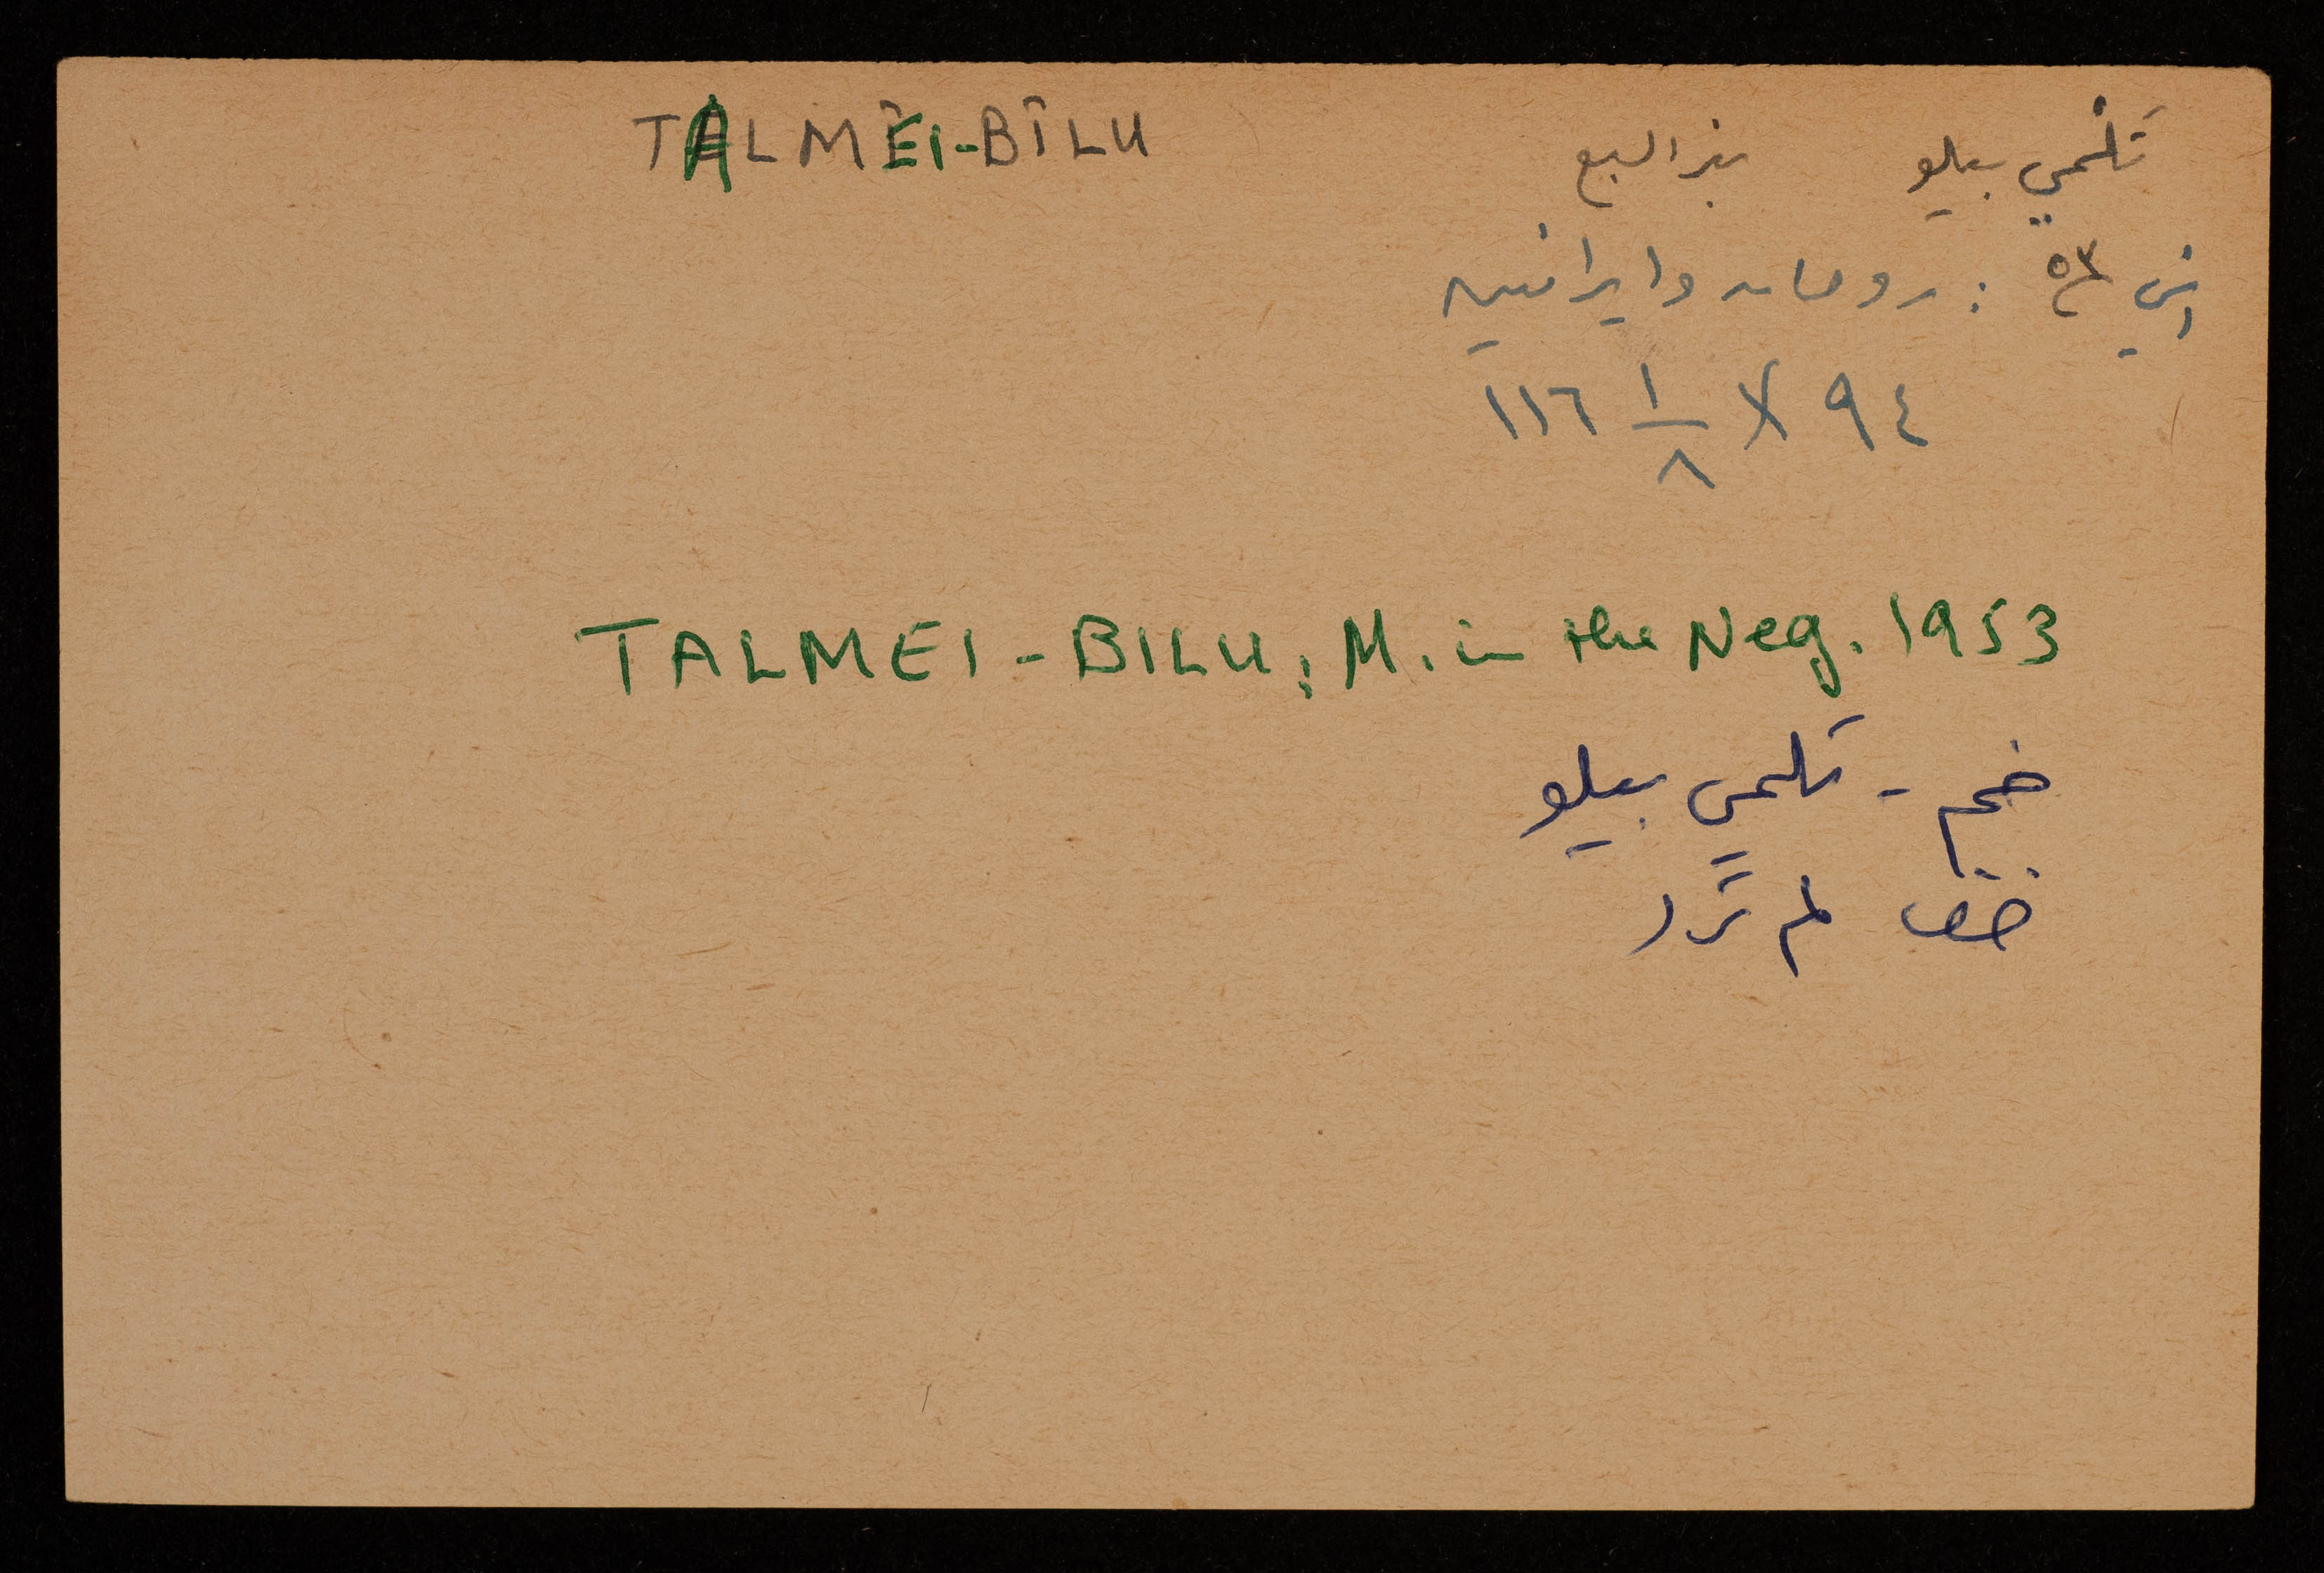 TALMEI-BILU تَلْمي بيلو بئر السبع
في ٥٣ : رومانيه وايرانيين
٩٤ X ١/٨ ١١٦
TALMEI-BILU; M. in the Neg. 1953
ضحم - تَلمي بيلو
ضف لم تَرد